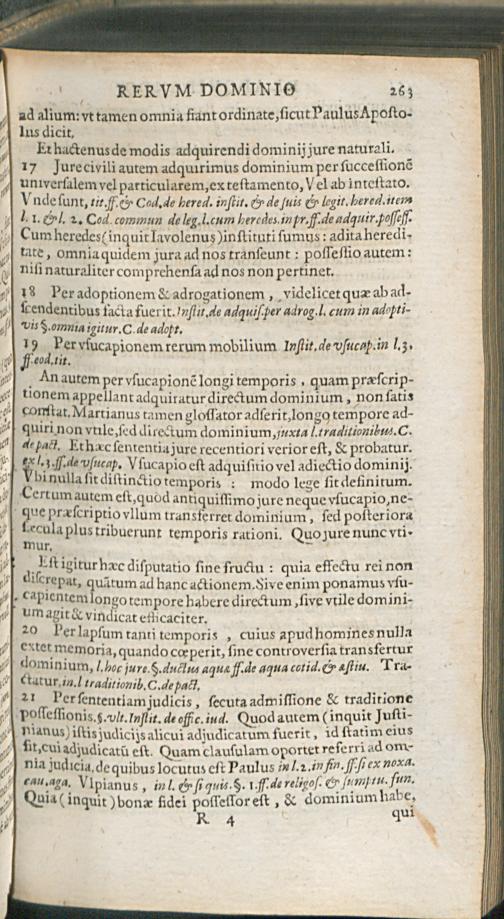 RERVM DOMINIO 263
ad alium: vt tamen omnia fiant ordinate, sicut Paulus Aposto-
lus dicit.
Et hactenus de modis adquirendi dominij jure naturali.
17 Jure civili autem adquirimus dominium per successionē
universalem vel particularem, ex testamento, Vel ab intestato.
Vnde sunt, tit. ff. & Cod. de hered. instit. & de suis & legit. hered. item
l. 1. & l. 2. Cod. commun de leg. l. cum heredes. in pr. ff. de adquir. possess.
Cum heredes (inquit Iavolenus) instituti sumus: adita heredi-
tate, omnia quidem jura ad nos transeunt: possessio autem:
nisi naturaliter comprehensa ad nos non pertinet.
18 Per adoptionem & adrogationem, videlicet quæ ab ad-
scendentibus facta fuerit. Instit. de adquis. per adrog. l. cum in adopti-
vis §. omnia igitur. C. de adopt.
19 Per vsucapionem rerum mobilium Instit. de vsucap. in l. 3.
ff. eod. tit.
An autem per vsucapionē longi temporis, quam præscrip-
tionem appellant adquiratur directum dominium, non satis
constat. Martianus tamen glossator adserit, longo tempore ad-
quiri non vtile, sed directum dominium, juxta l. traditionibus. C.
de pact. Et hæc sententia jure recentiori verior est, & probatur.
ex l. 3. ff. de vsucap. Vsucapio est adquisitio vel adiectio dominij.
Vbi nulla sit distinctio temporis: modo lege sit definitum.
Certum autem est, quòd antiquissimo jure neque vsucapio, ne-
que præscriptio vllum transferret dominium, sed posteriora
secula plus tribuerunt temporis rationi. Quo jure nunc vti-
mur.
Est igitur hæc disputatio sine fructu: quia effectu rei non
discrepat, quātum ad hanc actionem. Sive enim ponamus vsu-
capientem longo tempore habere directum, sive vtile domini-
um agit & vindicat efficaciter.
20 Per lapsum tanti temporis, cuius apud homines nulla
extet memoria, quando cœperit, sine controversia transfertur
dominium, l. hoc jure. §. ductus aquæ ff. de aqua cotid. & æstiu. Tra-
ctatur. in. l traditionib. C. de pact.
21 Per sententiam judicis, secuta admissione & traditione
possessionis. §. vlt. Instit. de offic. iud. Quod autem (inquit Justi-
nianus) istis judicijs alicui adjudicatum fuerit, id statim eius
fit, cui adjudicatū est. Quam clausulam oportet referri ad om-
nia judicia, de quibus locutus est Paulus in l. 2. in fin. ff. si ex noxa.
cau. aga. Vlpianus, in l. & si quis. §. 1. ff. de religos. & sumptu. fun.
Quia (inquit) bonæ fidei possessor est, & dominium habe,
R 4 qui